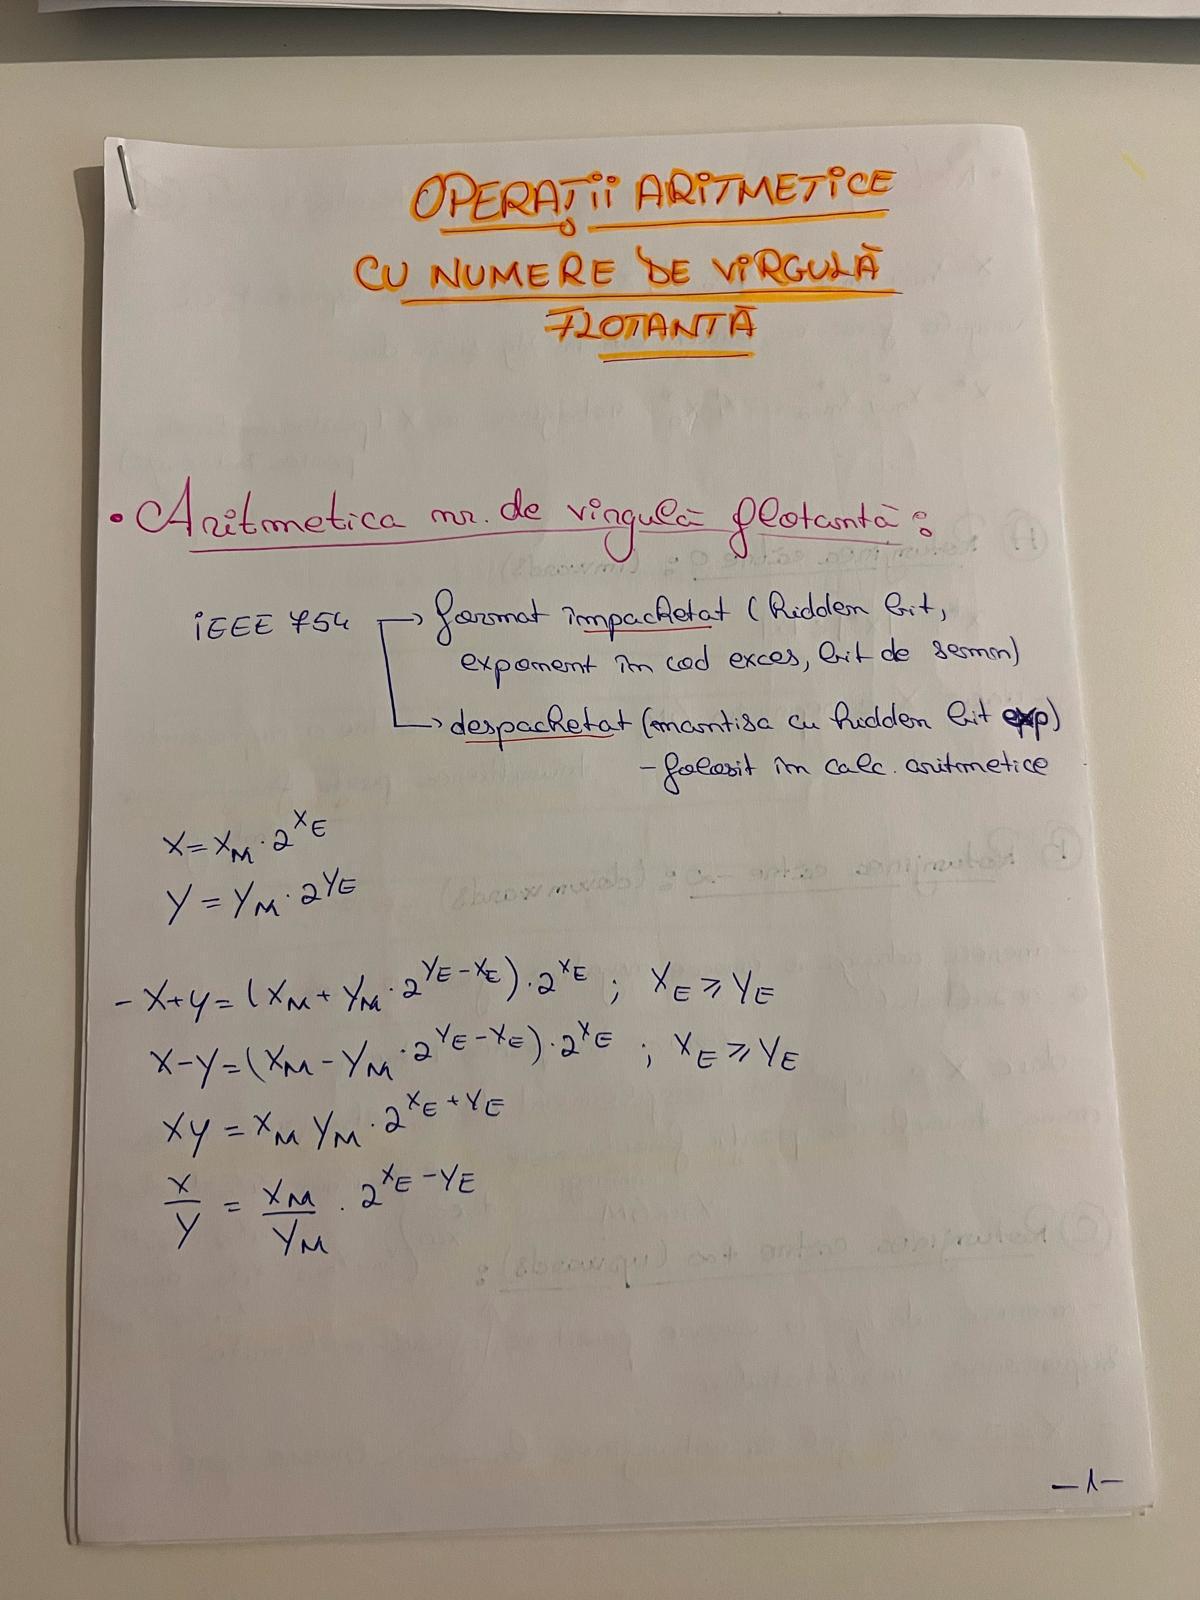 OPERAȚII ARITMETICE
CU NUMERE DE VIRGULĂ
FLOTANTĂ
• Aritmetica nr. de virgulă flotantă:
IEEE 754 → format împachetat (hidden bit,
exponent în cod exces, bit de semn)
→ despachetat (mantisa cu hidden bit exp)
- folosit în calc. aritmetice
X = X_M · 2^{X_E}
Y = Y_M · 2^{Y_E}
- X+Y = (X_M + Y_M · 2^{Y_E - X_E}) · 2^{X_E} ; X_E ≥ Y_E
X-Y = (X_M - Y_M · 2^{Y_E - X_E}) · 2^{X_E} ; X_E ≥ Y_E
XY = X_M Y_M · 2^{X_E + Y_E}
X/Y = X_M/Y_M · 2^{X_E - Y_E}
-1-